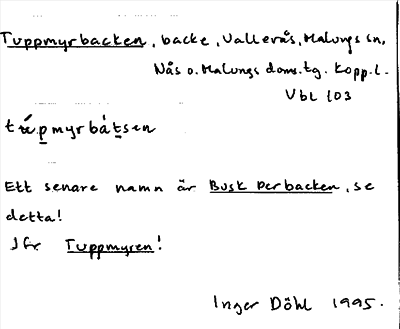 Tuppmyrbacken, backe, Vallerås, Malungs sn,
Nås o. Malungs doms.tg. Kopp.l.
Vbl 103
túpmyrbátsen
Ett senare namn är Busk Perbacken, se
detta!
Jfr Tuppmyren!
Inger Döhl 1995.